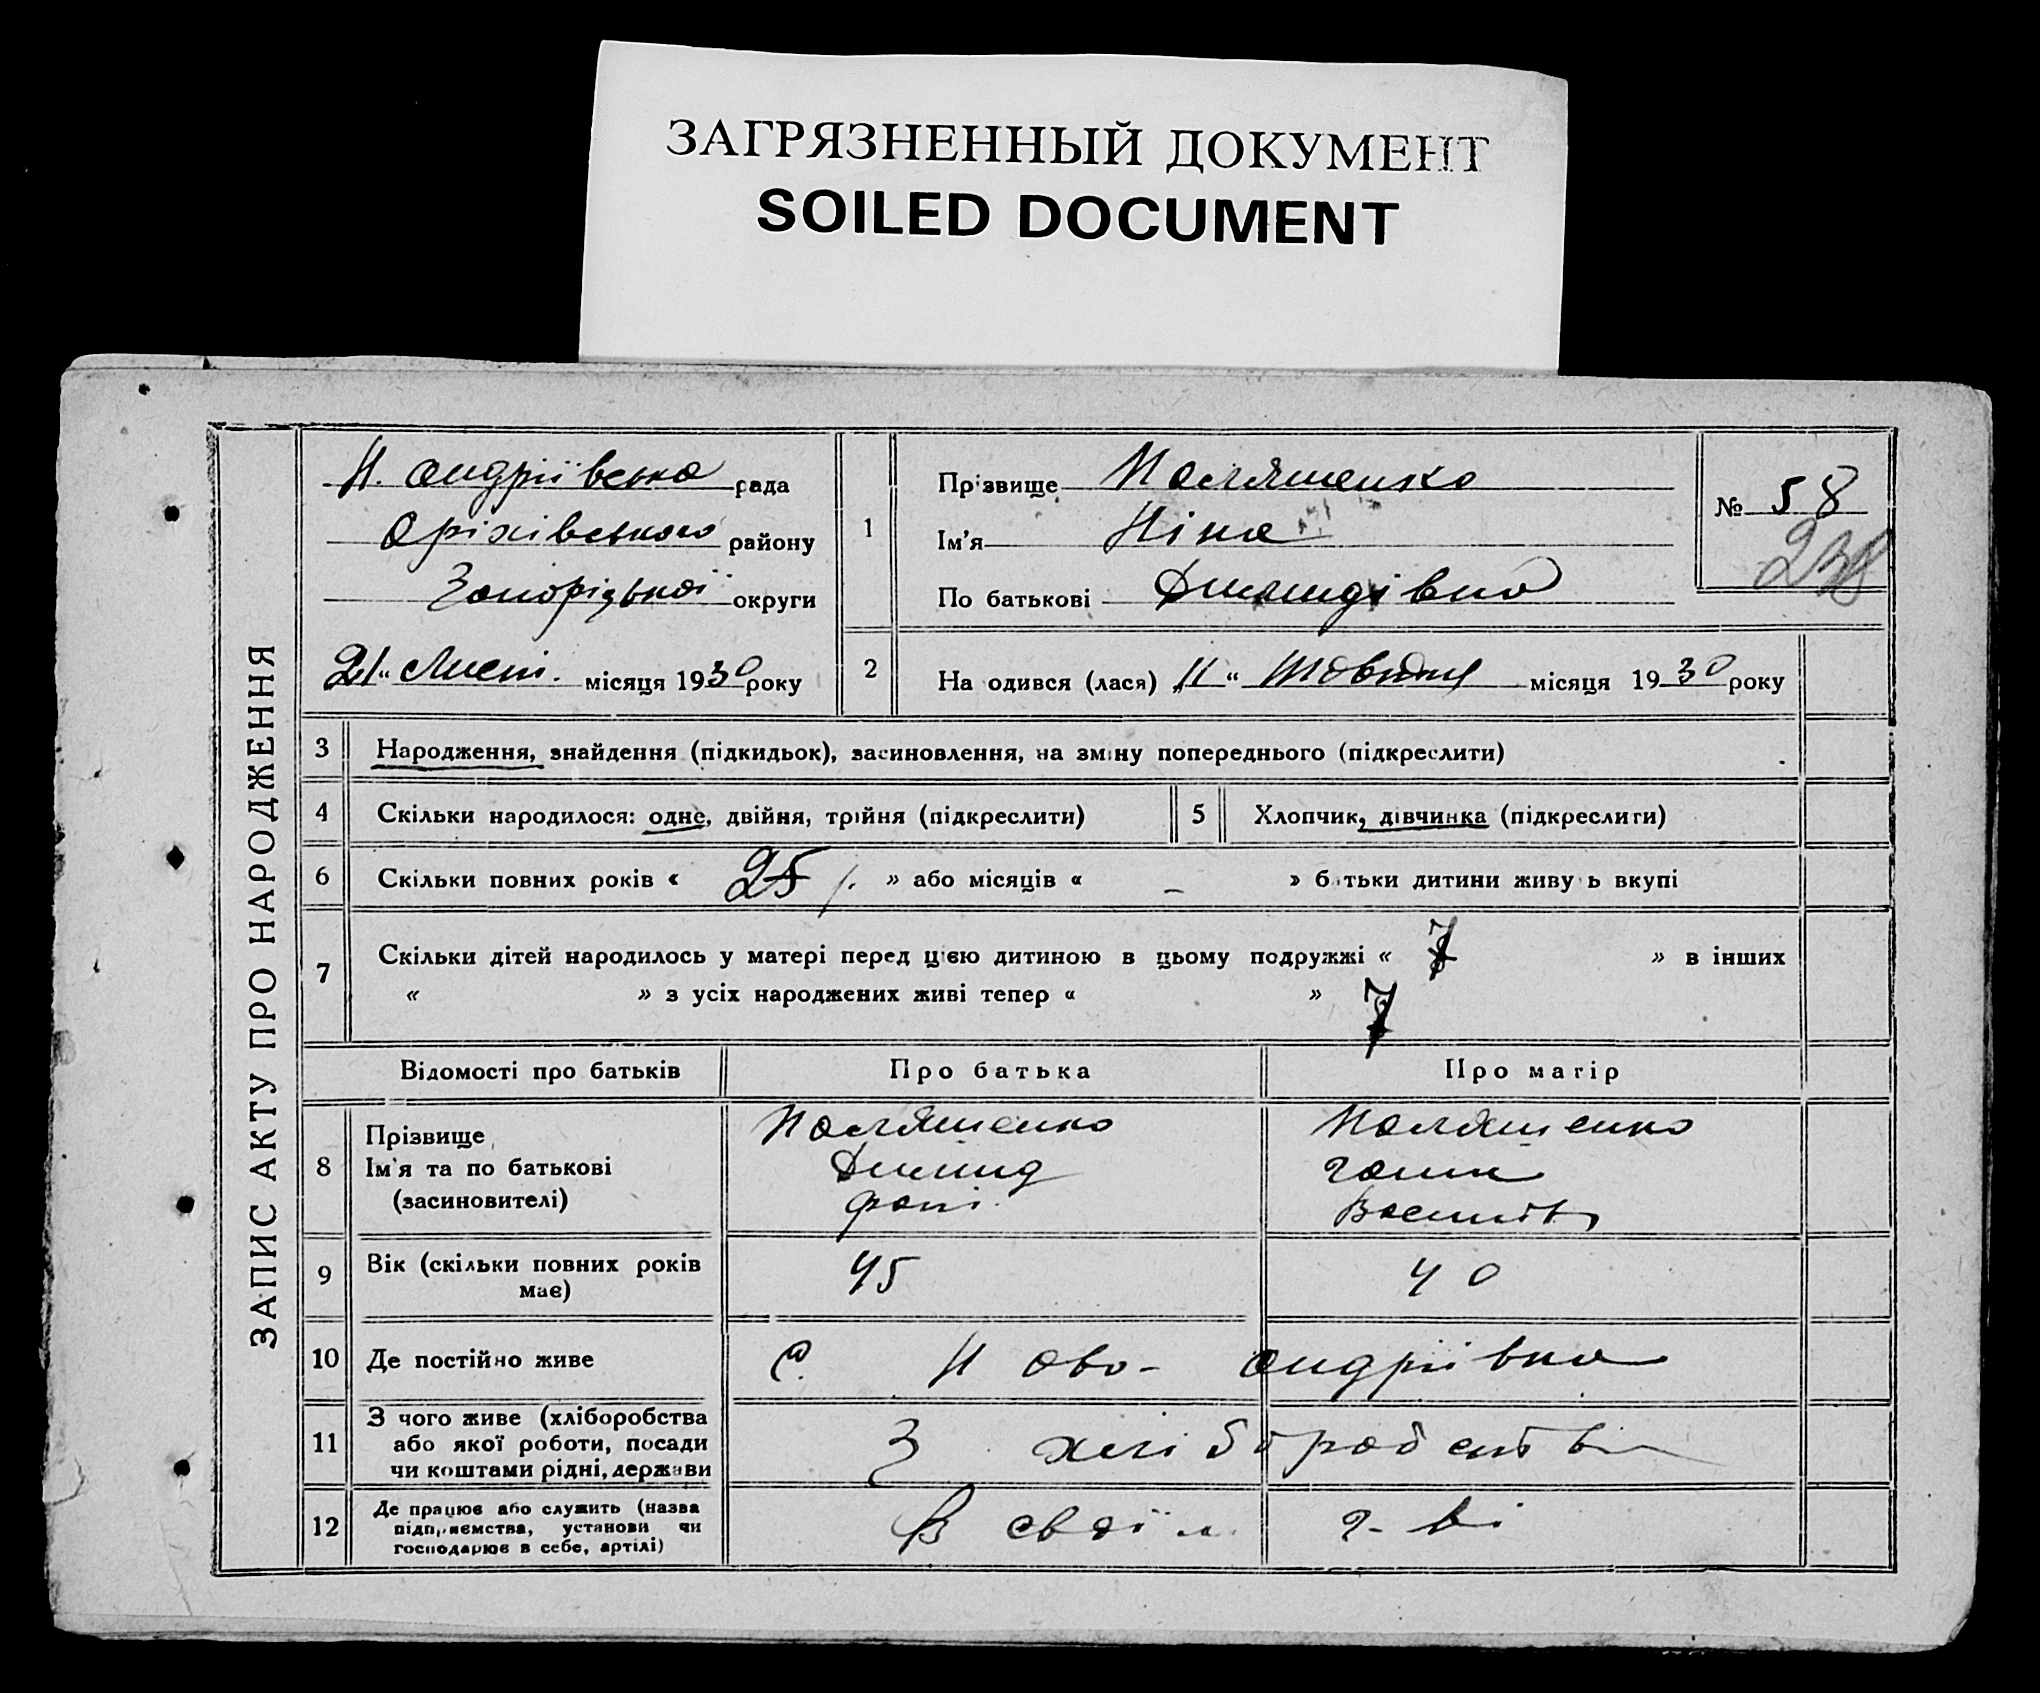 ЗАГРЯЗНЕННЫЙ ДОКУМЕНТ
SOILED DOCUMENT
ЗАПИС АКТУ ПРО НАРОДЖЕННЯ
Н. Андріївська рада
Оріхівського району
Запорізької округи
21 " Лист. місяця 1930 року
1
Прізвище
Ім'я Ніна
По батькові
№ 58
238
2
На одився (лася) " 11 " Жовтня місяця 1930 року
3 Народження, знайдення (підкидьок), засиновлення, на зміну попереднього (підкреслити)
4 Скільки народилося: одне, двійня, трійня (підкреслити)
5 Хлопчик, дівчинка (підкреслити)
6 Скільки повних років « 25 р. » або місяців « – » батьки дитини живуть вкупі
7 Скільки дітей народилось у матері перед цією дитиною в цьому подружжі « 7 » в інших
« » з усіх народжених живі тепер « » 7
Відомості про батьків Про батька Про матір
8 Прізвище
Ім'я та по батькові
(засиновителі)
Ганна
9 Вік (скільки повних років
має)
45 40
10 Де постійно живе с. Ново-Андріївка
11 З чого живе (хліборобства
або якої роботи, посади
чи коштами рідні, держави
З хліборобства
12 Де працює або служить (назва
підприємства, установи чи
господарює в себе, артілі)
В своїм г-ві